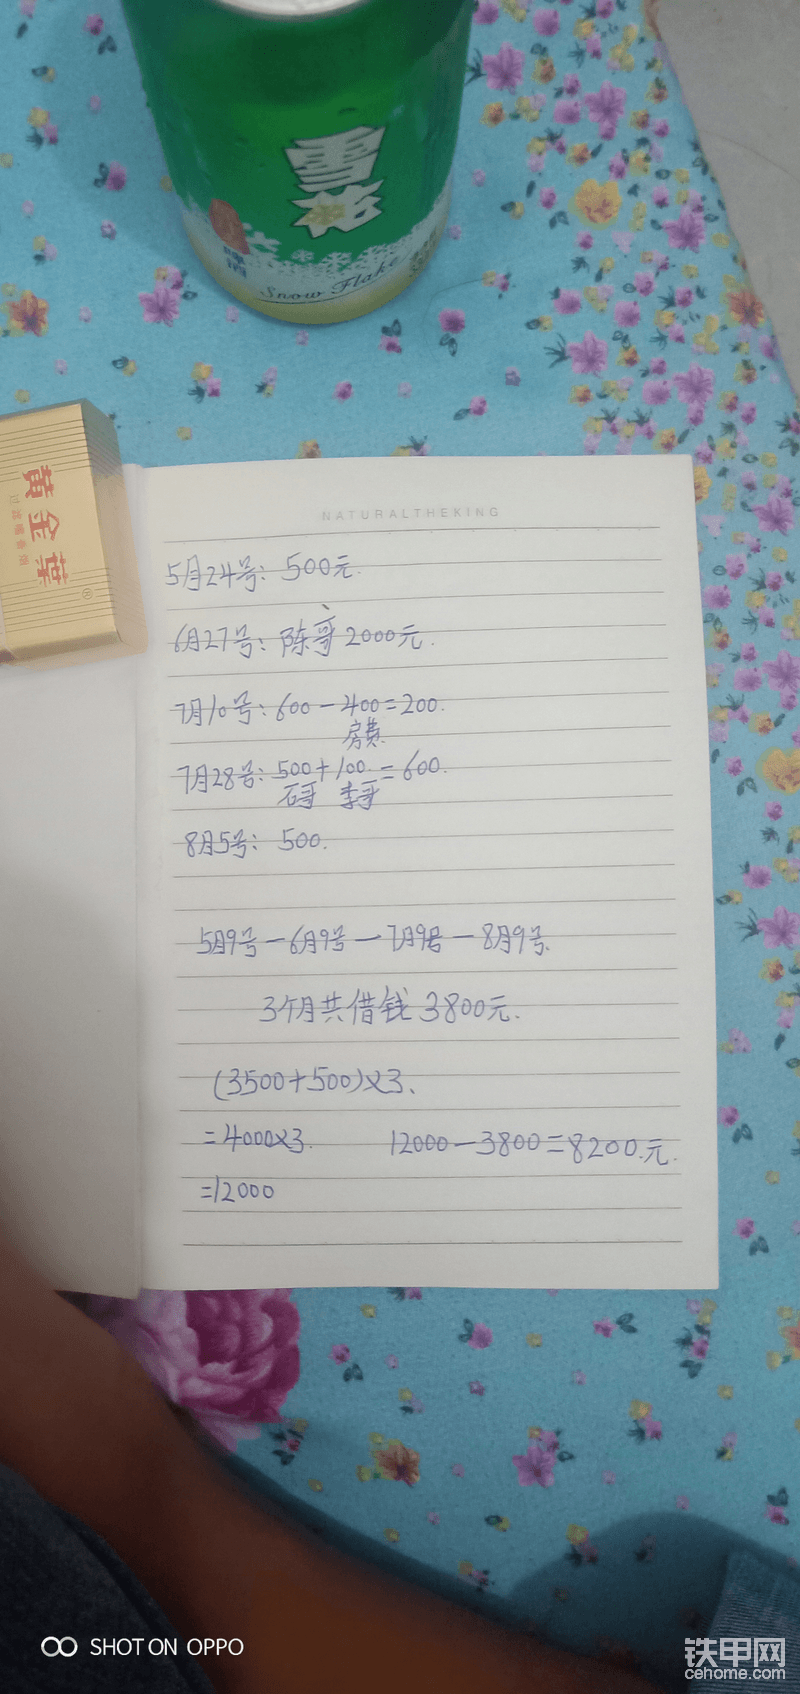 雪花
啤酒
Snow Flake
黄金葉
过滤嘴香烟
NATURALTHEKING
5月24号: 500元.
6月27号: 陈哥 2000元.
7月10号: 600-400=200.
房费
7月28号: 500+100=600.
石哥 李哥
8月5号: 500.
5月9号-6月9号-7月9号-8月9号.
3个月共借钱3800元.
(3500+500)×3、
=4000×3. 12000-3800=8200.元.
=12000
SHOT ON OPPO
铁甲网
cehome.com